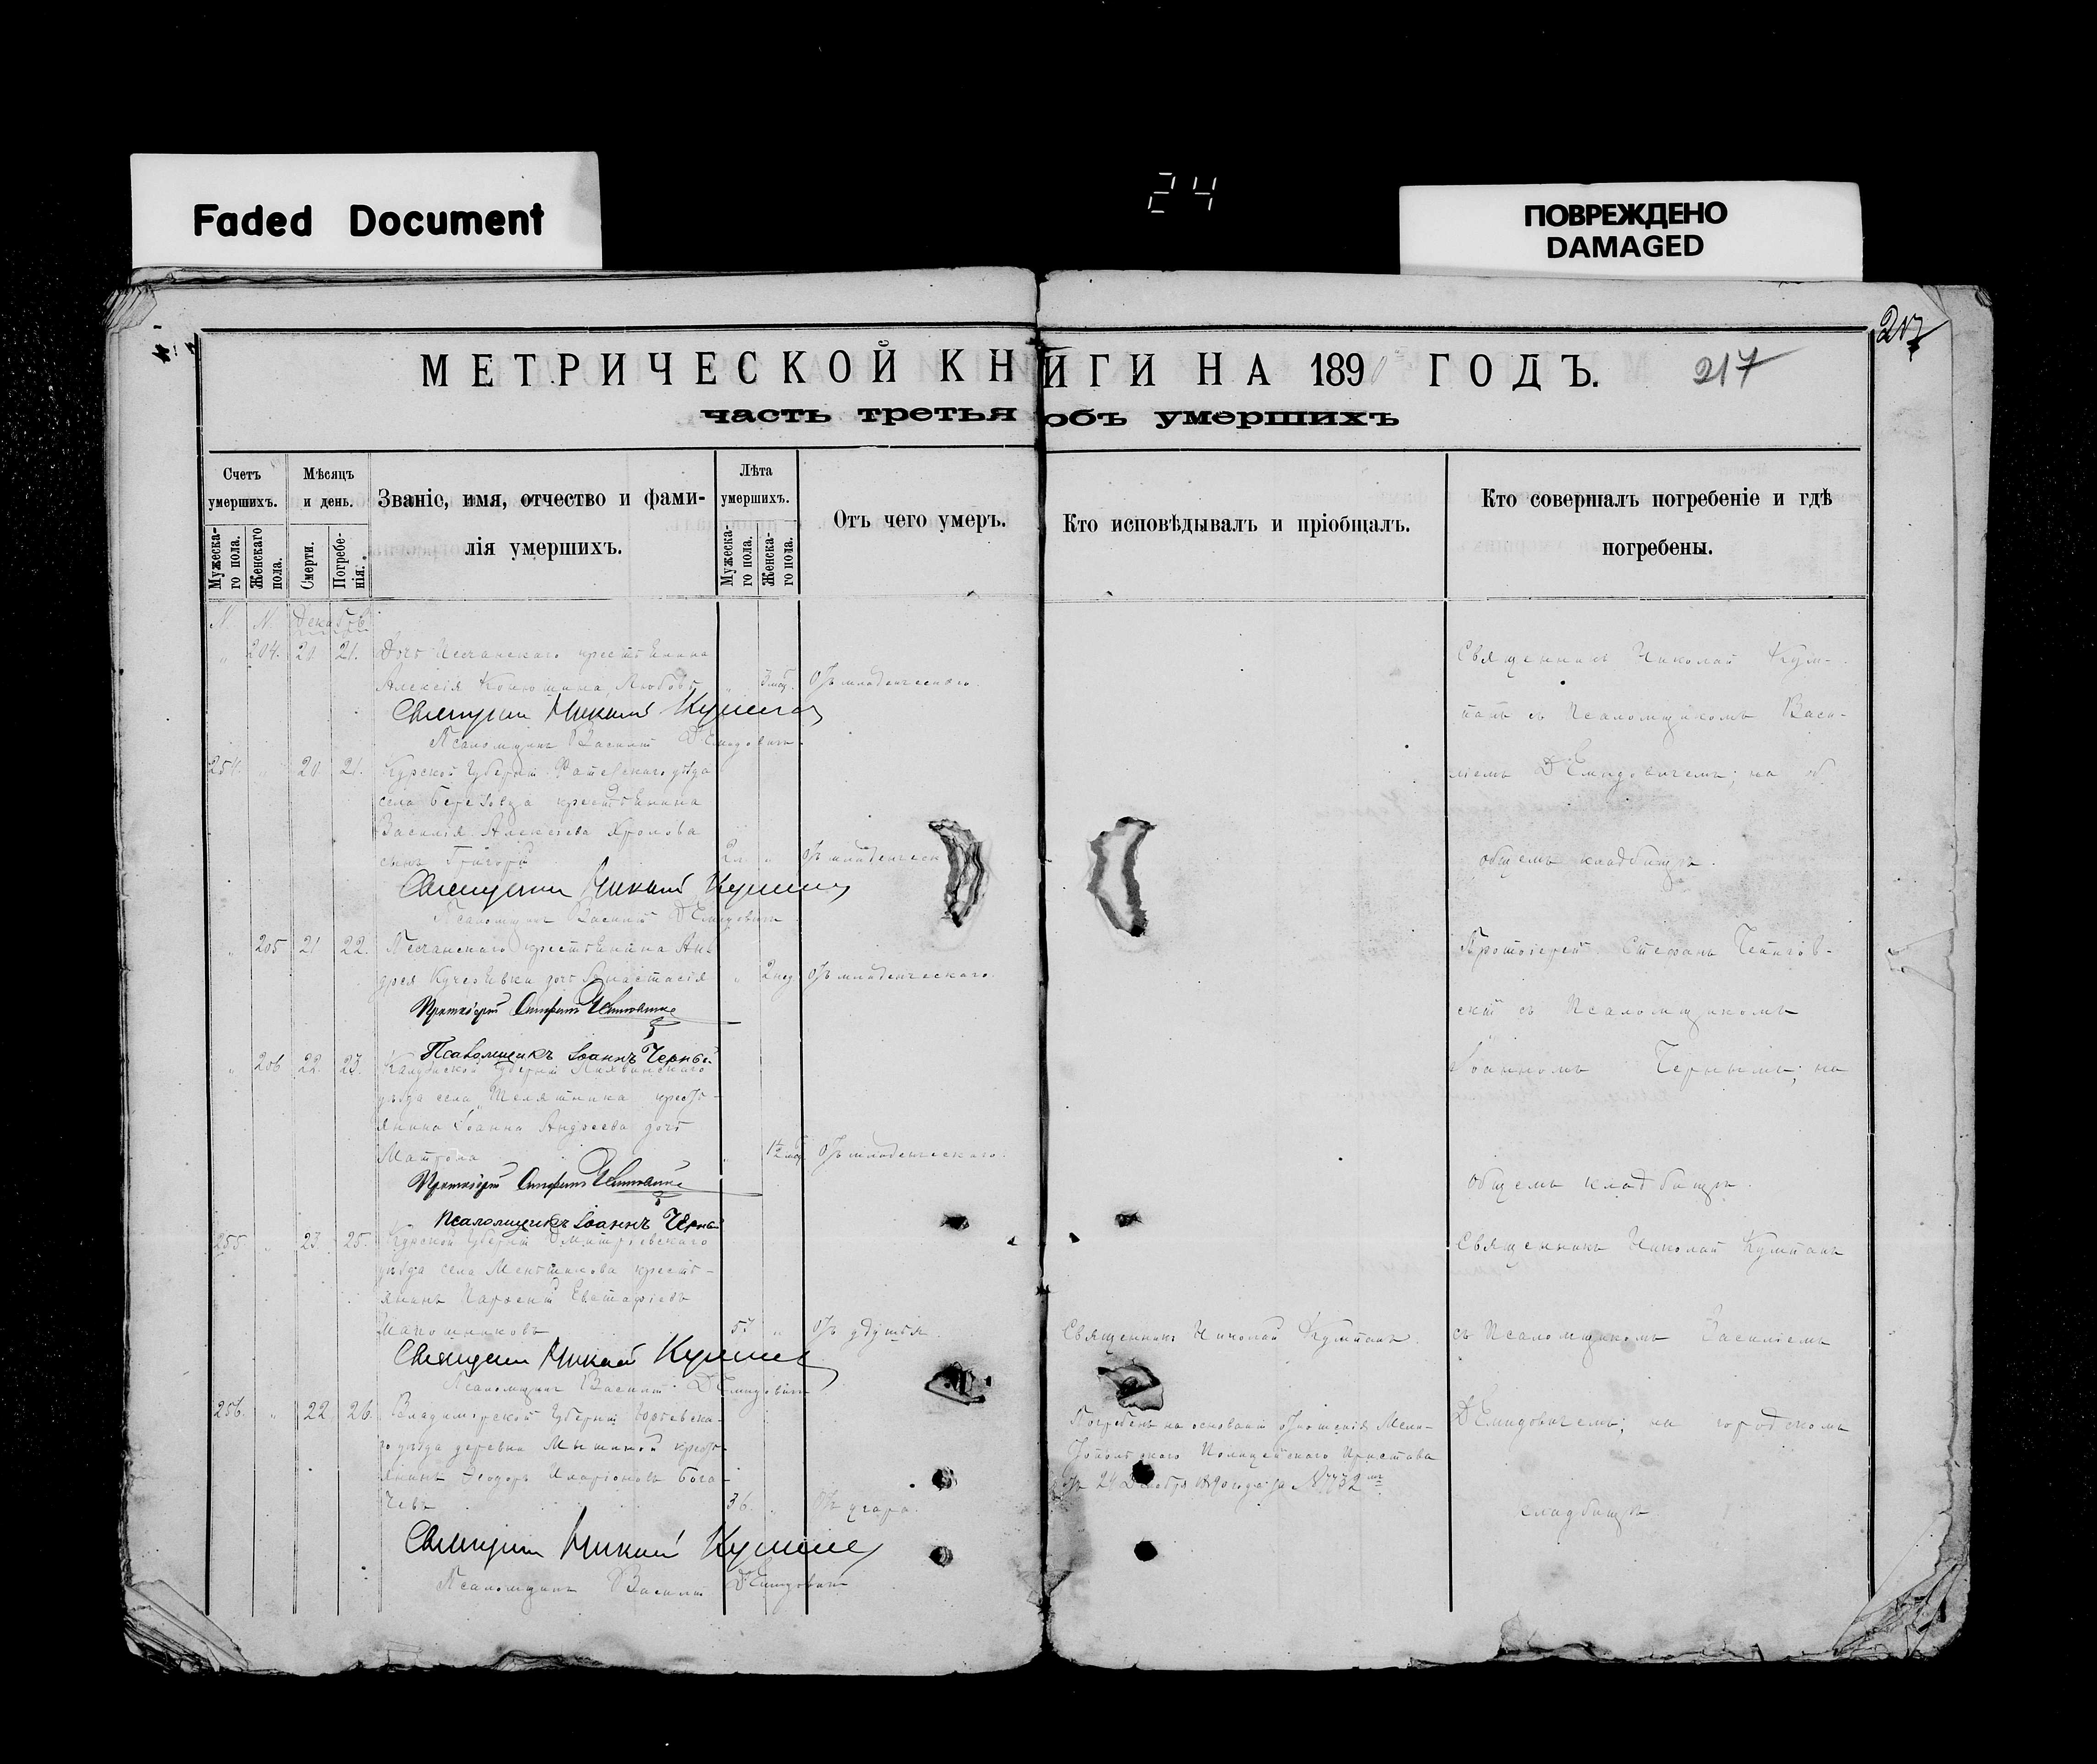 Faded Document
24
ПОВРЕЖДЕНО
DAMAGED
217
МЕТРИЧЕСКОЙ КНИГИ НА 1890 ГОДЪ. 217
часть третья объ умершихъ
Счетъ умершихъ.
Мѣсяцъ и день.
Званіе, имя, отчество и фами-
лія умершихъ.
Лѣта умершихъ.
Отъ чего умеръ.
Кто исповѣдывалъ и пріобщалъ.
Кто совершалъ погребеніе и гдѣ
погребены.
Мужеска-
го пола.
Женскаго
пола.
Смерти.
Погребе-
нія.
Мужеска-
го пола.
Женска-
го пола.
N. N. Декабрь
" 204. 20. 21. Дочь Песчанскаго крестьянина
Алексія Любовь " 3 мѣс. Отъ младенческаго.
Священникъ Николай
Псаломщикъ Василій Демидовичъ.
Священникъ Николай
съ Псаломщикомъ Васи-
ліемъ Демидовичемъ; на об
общемъ кладбищѣ.
254. " 20. 21. Курской Губерніи Фатежскаго уѣзда
села крестьянина
Василія Алексіева Фролова
сынъ Григорій 2 " Отъ младенческ
Священникъ Николай
Псаломщикъ Василій Демидовичъ
" 205 21 22. Песчанскаго крестьянина Ан-
дрея дочь Анастасія " 2 нед. Отъ младенческаго.
Протоіерей Стефанъ
Псаломщикъ Іоаннъ Черный
Протоіерей Стефанъ
скій съ Псаломщикомъ
Іоанномъ Чернымъ; на
общемъ кладбищѣ.
" 206 22. 23. Калужской Губерніи Лихвинскаго
уѣзда села кресть-
янина Іоанна Андреева дочь
Матрона 1½ мѣс. Отъ младенческаго.
Протоіерей Стефанъ
Псаломщикъ Іоаннъ Черный
255 " 23. 25. Курской Губерніи Дмитріевскаго
уѣзда села крестъ-
янинъ Парѳеній Евстафіевъ
57 " Отъ удушья.
Священникъ Николай
Священникъ Николай
съ Псаломщикомъ Василіемъ
Демидовичемъ; на городскомъ
кладбищѣ
Священникъ Николай
Псаломщикъ Василій Демидовичъ
256. " 22. 26. Владимірской Губерніи Юрьевска-
го уѣзда деревни кресть-
янинъ Ѳеодоръ Иларіоновъ Бога-
чевъ 36. " Отъ угара.
Погребенъ на основаніи отношенія Мели-
топольскаго Полицейскаго Пристава
отъ 24 Декабря 1890 года за № 7732
Священникъ Николай
Псаломщикъ Василій Демидовичъ